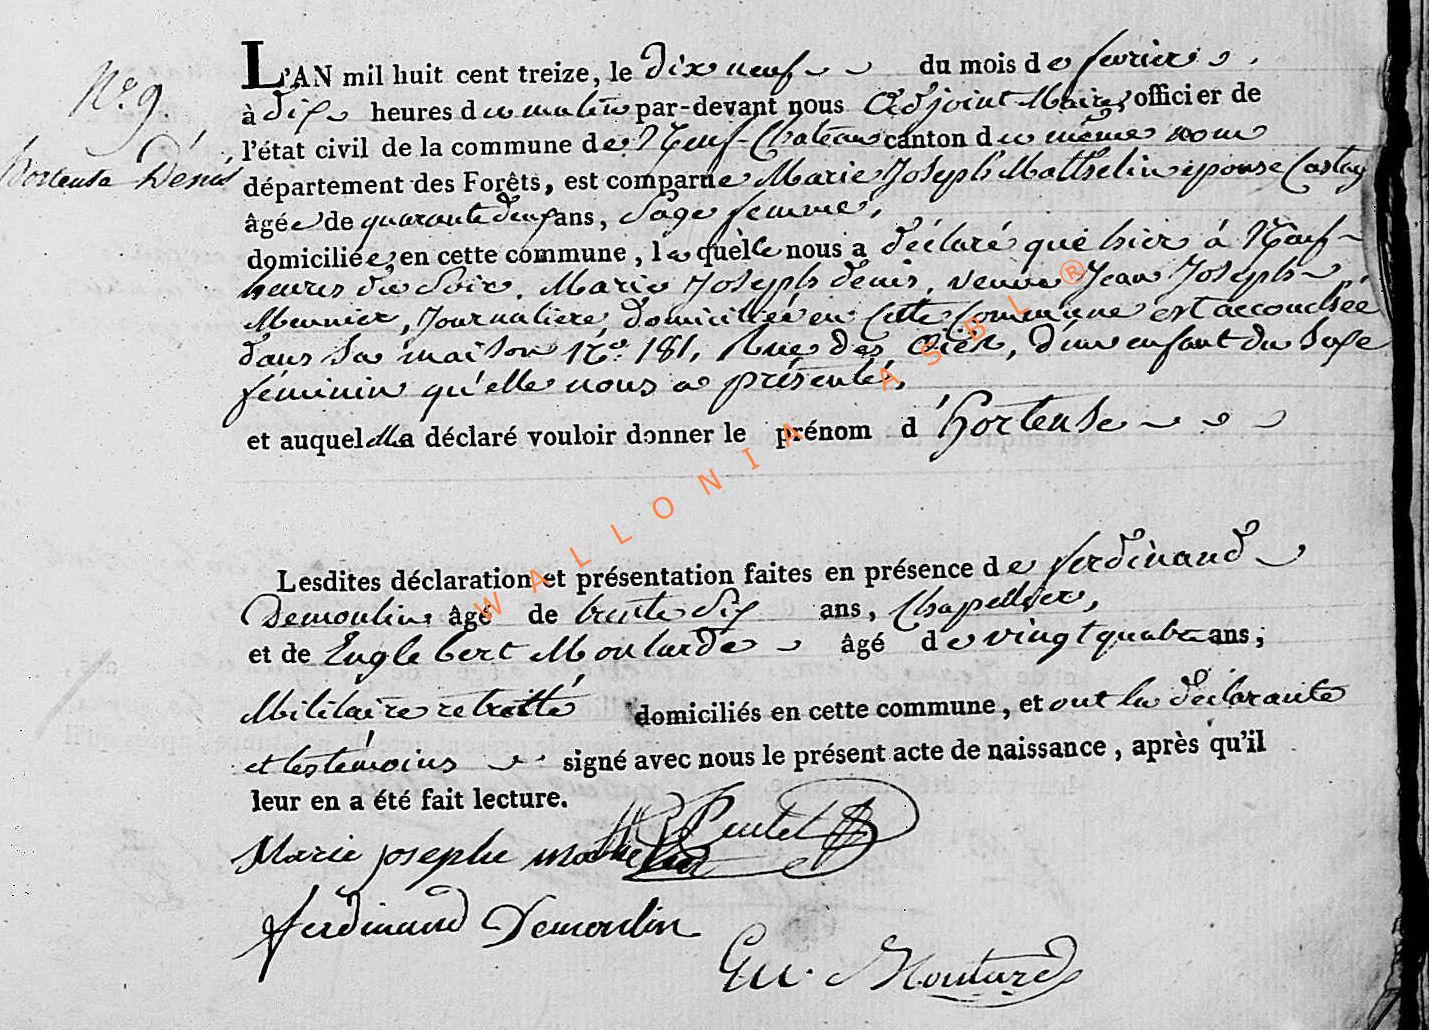 N.o 9.
hortense Denis
L'AN mil huit cent treize, le dix neuf du mois de fevrier
à dix heures du matin par-devant nous Adjoint Maire, officier de
l'état civil de la commune de Neuf-Chateau canton du même nom
département des Forêts, est comparue Marie Joseph Mathelin epouse
âgée de quarante ans, Sage femme,
domiciliée, en cette commune, laquelle nous a déclaré que hier à Neuf-
heures du Soir, Marie Joseph denis, veuve Jean Joseph
Meunier, Journaliere, domiciliée en Cette Commune est accouchée
dans Sa maison N.o 181, Rue des , d'un enfant du Sexe
féminin qu'elle nous a présenté,
et auquel elle a déclaré vouloir donner le prénom d'hortense
Lesdites déclaration et présentation faites en présence de ferdinand
Demoulin, âgé de trente Six ans, Chapellier,
et de Englebert Moutarde âgé de vingt quatre ans;
Militaire retraité domiciliés en cette commune, et ont la déclarante
et les témoins signé avec nous le présent acte de naissance, après qu'il
leur en a été fait lecture.
Marie josephe mathelin
ferdinand Demoulin
Moutarde
WALLONIA ASBL ®